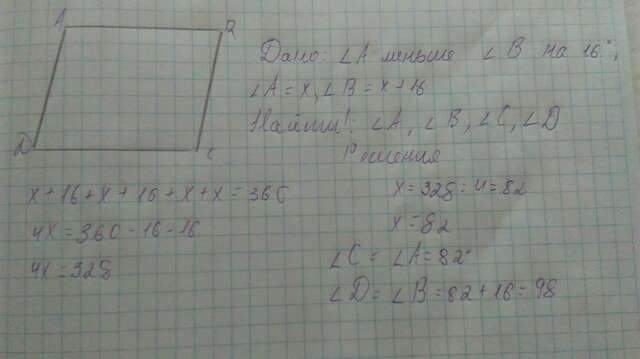 A
B
D
C
Дано: ∠A меньше ∠B на 16°,
∠A = x, ∠B = x + 16
Найти: ∠A, ∠B, ∠C, ∠D
Решения
x + 16 + x + 16 + x + x = 360
4x = 360 - 16 - 16
4x = 328
x = 328 : 4 = 82
x = 82
∠C = ∠A = 82°
∠D = ∠B = 82 + 16 = 98